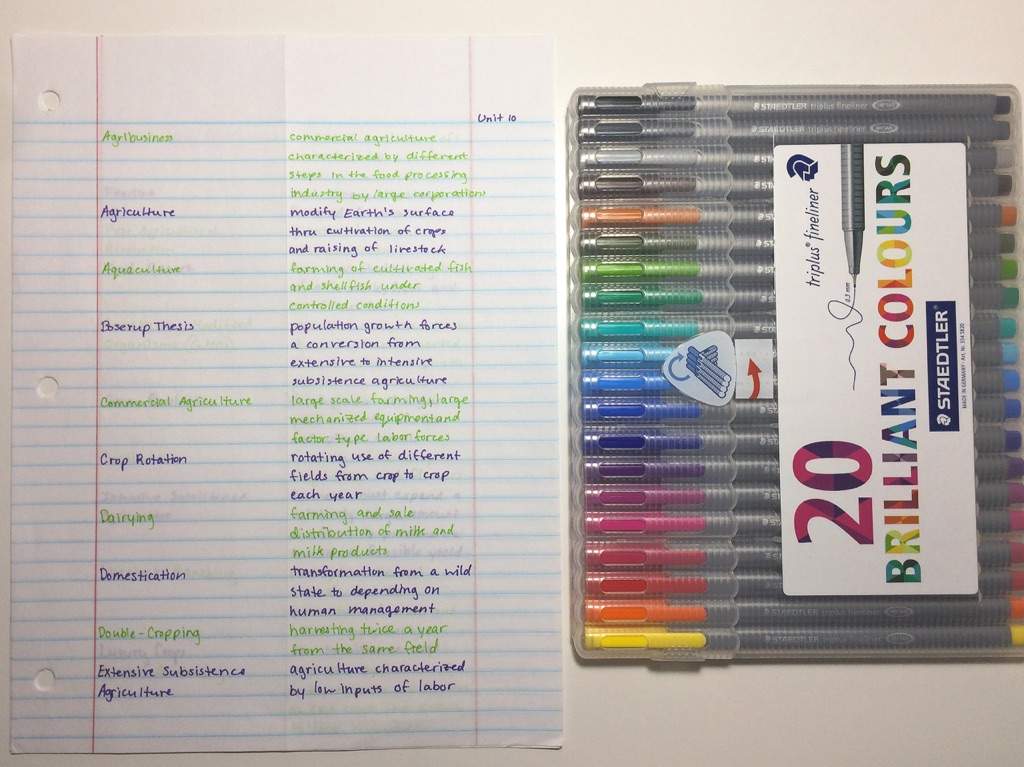 Unit 10
Agribusiness commercial agriculture
characterized by different
steps in the food processing
industry by large corporations
Agriculture modify Earth's surface
thru cultivation of crops
and raising of livestock
Aquaculture farming of cultivated fish
and shellfish under
controlled conditions
Boserup Thesis population growth forces
a conversion from
extensive to intensive
subsistence agriculture
Commercial Agriculture large scale farming, large
mechanized equipment and
factor type labor forces
Crop Rotation rotating use of different
fields from crop to crop
each year
Dairying farming and sale
distribution of milk and
milk products
Domestication transformation from a wild
state to depending on
human management
Double-Cropping harvesting twice a year
from the same field
Extensive Subsistence agriculture characterized
Agriculture by low inputs of labor
STAEDTLER triplus fineliner
STAEDTLER triplus fineliner
triplus® fineliner
0.3 mm
20
BRILLIANT COLOURS
STAEDTLER®
MADE IN GERMANY